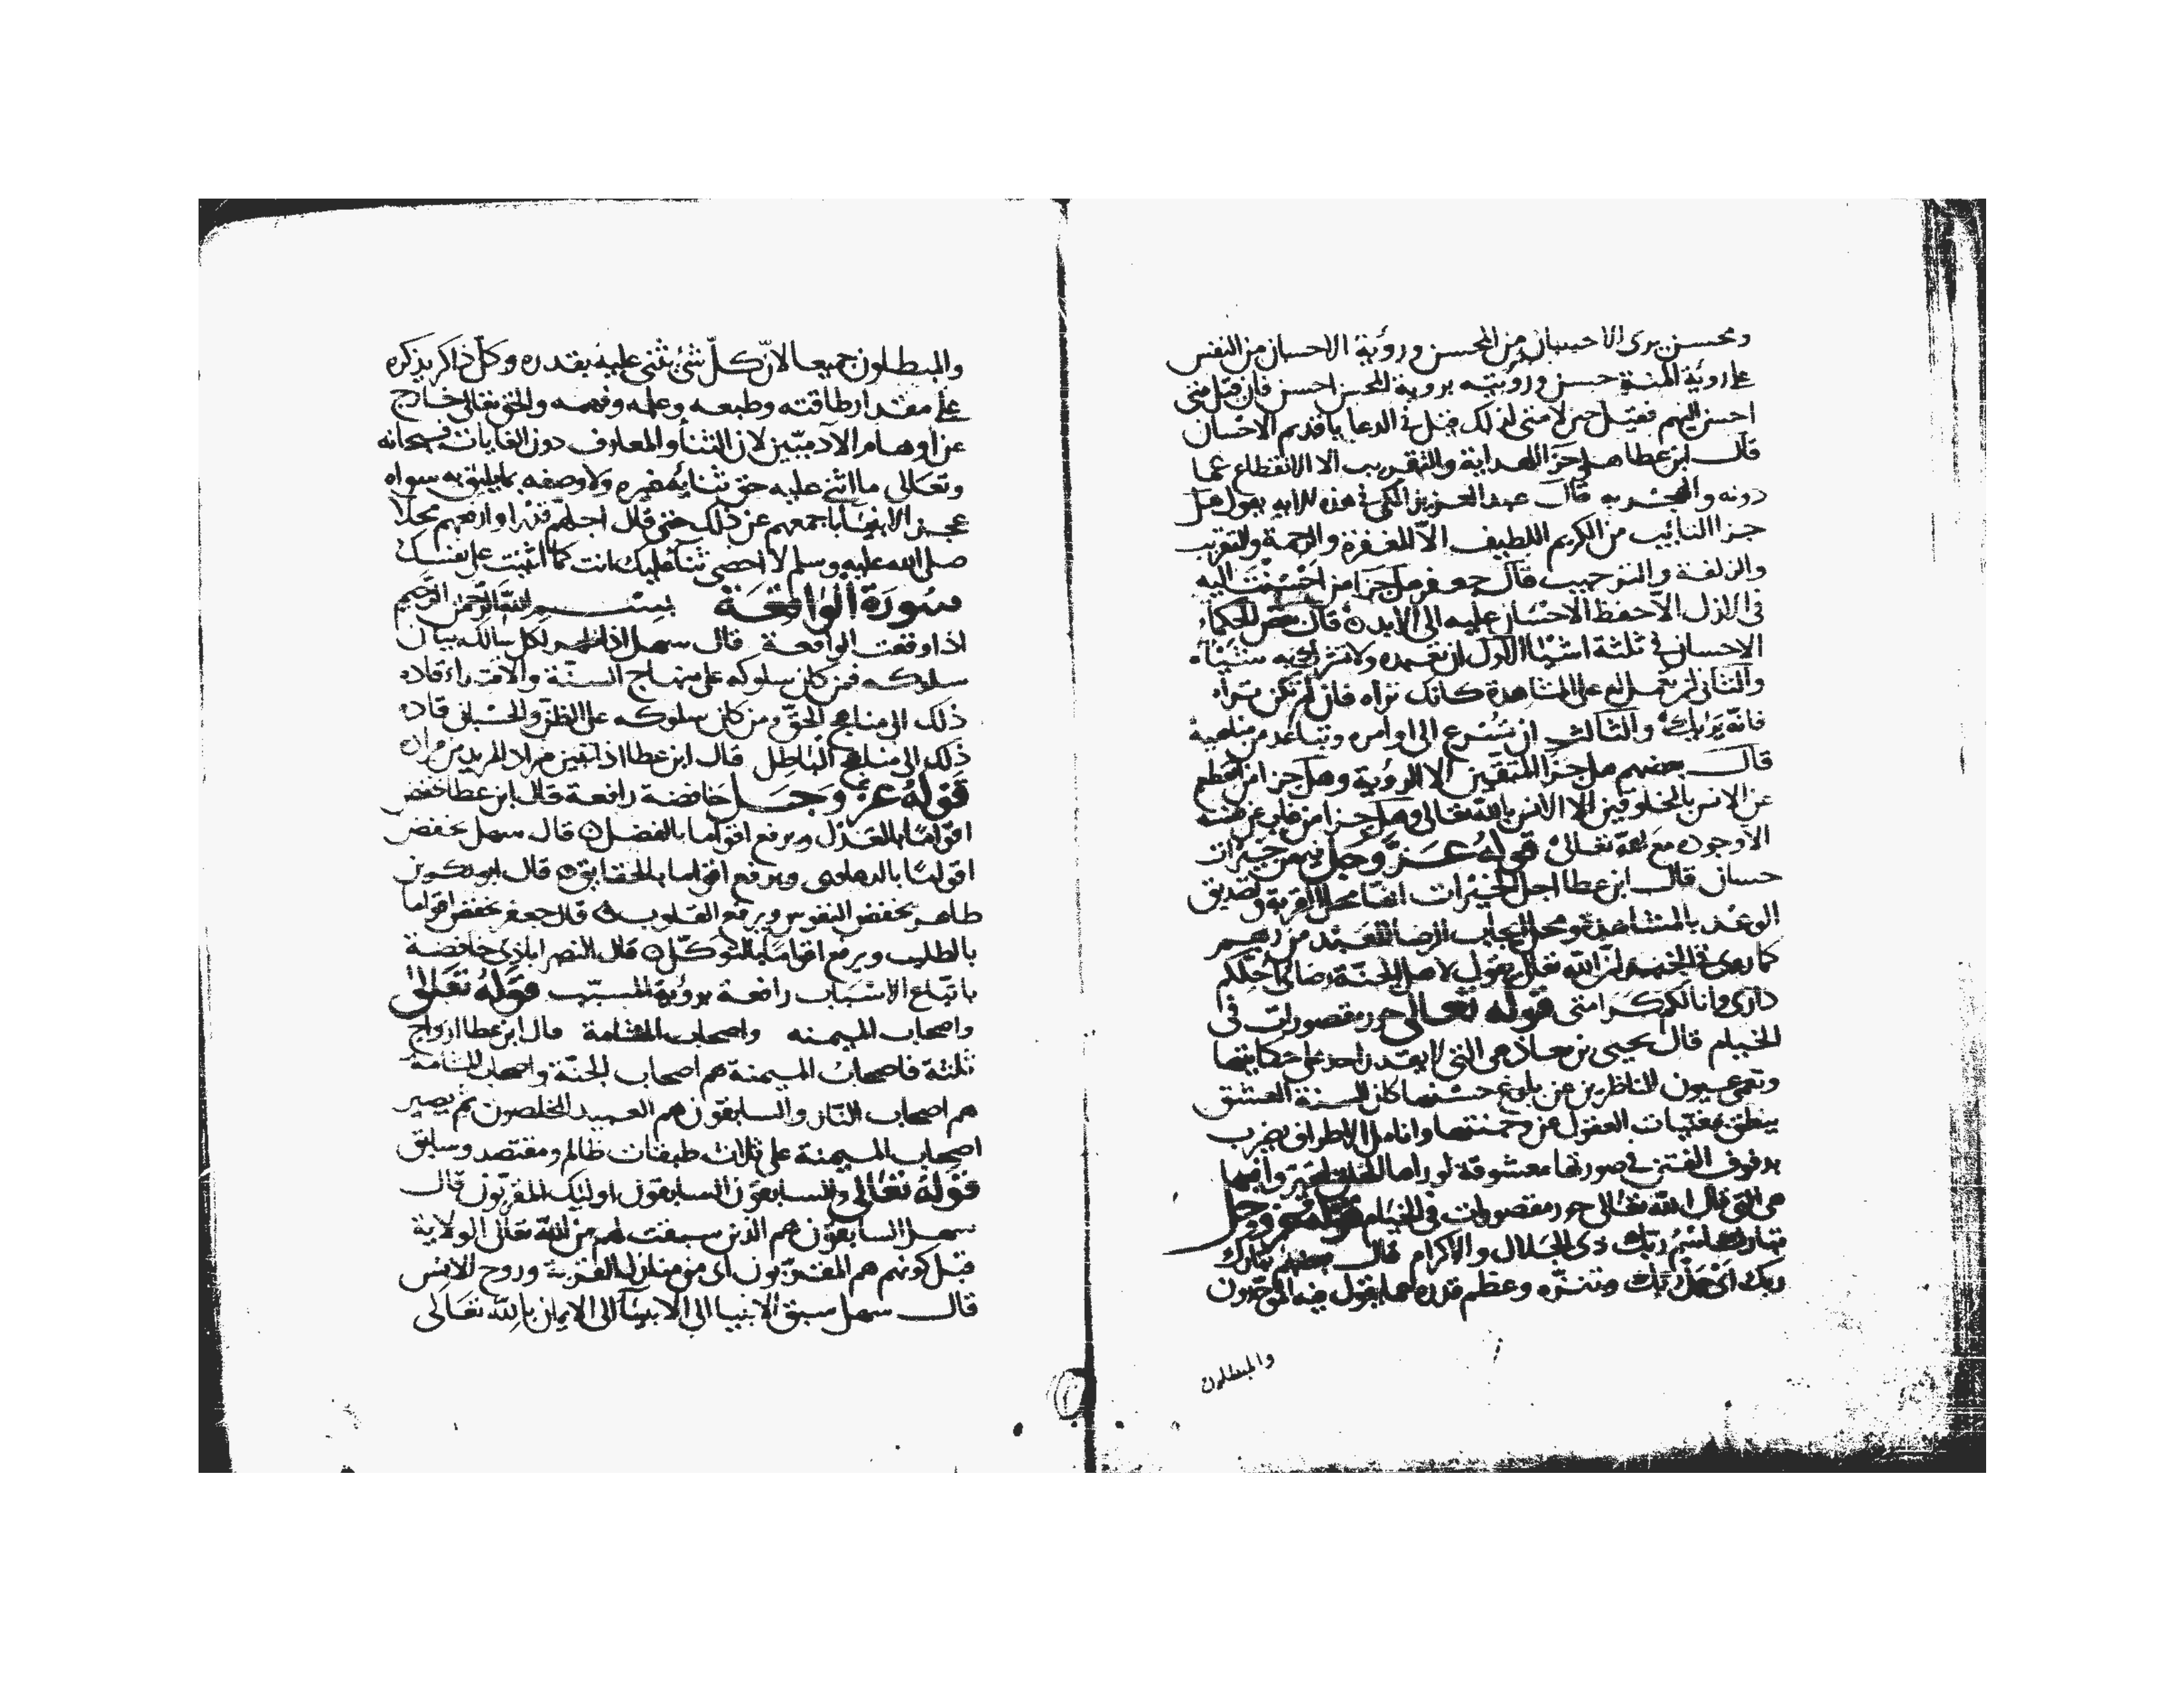 ومحسن يرى الاحسان من المحسن ورؤية الاحسان من النفس
على رؤية المنة حسن ورؤيته برؤية المحسن احسن فان قيل متى
احسن اليهم فقيل حين لا متى لذلك قيل في الدعا يا قديم الاحسان
قال ابن عطا هل جزا الهداية والتقريب الا الانقطاع عما
دونه به قال عبد العزيز المكي في هذه الاية يقول هل
جزا التايب من الكريم اللطيف الا المغفرة والرحمة والتقريب
والزلفة والترحيب قال جعفر هل جزا من احسنت اليه
في الازل الا حفظ الاحسان عليه الى الابد قال بعض الحكماء
الاحسان في ثلثة اشيا الاول ان تعبده ولا تشرك به شيئا
والثاني ان تعمل على المشاهدة كانك تراه فان لم تكن تراه
فانه يريك والثالث ان تسرع الى اوامره وتباعد من مناهيه
قال بعضهم هل جزا المتقين الا الرؤية وهل جزا من انقطع
عن الانس بالمخلوقين الا الانس بالله تعالى وهل جزا من فني عن نفسه
الا وجوده مع الله تعالى قوله عز وجل فيهن خيرات
حسان قال ابن عطا اجل الخيرات محل القربة وتصديق
الوعد بالمشاهدة ومحل ايجاب الرضا للعبد من ربهم
كما روى في الخبر ان الله تعالى يقول لاهل الجنة رضائي احلكم
داري وانالكم كرامتي قوله تعالى حور مقصورات في
الخيام قال يحيى بن معاذ هي التي لا يقدر احد على حكايتها
وتعمى عيون الناظرين عن بلوغ حسنها كان السنة العشق
ينطق بمغيبات العقول عن وانامل الاطراف يضرب
بدفوف الفتن في صورتها معشوقة لو راها
هي التي قال الله تعالى حور مقصورات في الخيام قوله عز وجل
تبارك اسم ربك ذي الجلال والاكرام قال بعضهم تبارك
ربك اي جل ربك وتنزه وعظم قدره عما يقول فيه الموحدون
والمبطلون
والمبطلون جميعا لان كل شئ يثنى عليه بقدره وكل ذاكر يذكره
على مقدار طاقته وطبعه وعلمه وفهمه والحق تعالى خارج
عن اوهام الآدميين لان الثنا والمعارف دون الغايات فسبحانه
وتعالى ما اثنى عليه حق ثنايه غيره ولا وصفه بما يليق به سواه
عجز الانبيا باجمعهم عن ذلك حتى قال اجلهم قدرا وارفعهم محلا
صلى الله عليه وسلم لا احصي ثنا عليك انت كما اثنيت على نفسك
سورة الواقعة بسم الله الرحمن الرحيم
اذا وقعت الواقعة قال سهل اذا ظهر لكل سالك بيان
سلوكه فمن كان سلوكه على منهاج السنة والاقتداء قاده
ذلك الى مناهج الحق ومن كان سلوكه على الظن والحسبان قاده
ذلك الى مناهج الباطل قال ابن عطا اذا تبين مراد المريد من مراده
قوله عز وجل خافضة رافعة قال ابن عطا يخفض
اقواما بالعدل ويرفع اقواما بالفضل قال سهل يخفض
اقواما بالدعاوى ويرفع اقواما بالحقايق قال ابو بكر بن
طاهر يخفض النفوس ويرفع القلوب قال جعفر يخفض اقواما
بالطلب ويرفع اقواما بالتوكل قال النصرابادي خافضة
باتباع الاسباب رافعة برؤية المسبب قوله تعالى
واصحاب الميمنه واصحاب المشامة قال ابن عطا ازواج
ثلثة فاصحاب الميمنة هم اصحاب الجنة واصحاب المشامة
هم اصحاب النار والسابقون هم العبيد المخلصون ثم يصير
اصحاب الميمنة على ثلاث طبقات ظالم ومقتصد وسابق
قوله تعالى والسابقون السابقون اوليك المقربون قال
سهل السابقون هم الذين سبقت لهم من الله تعالى الولاية
قبل كونهم هم المقربون اي من منازل القربة وروح الانس
قال سهل سبق الانبيا الى الانبيا الى الايمان بالله تعالى